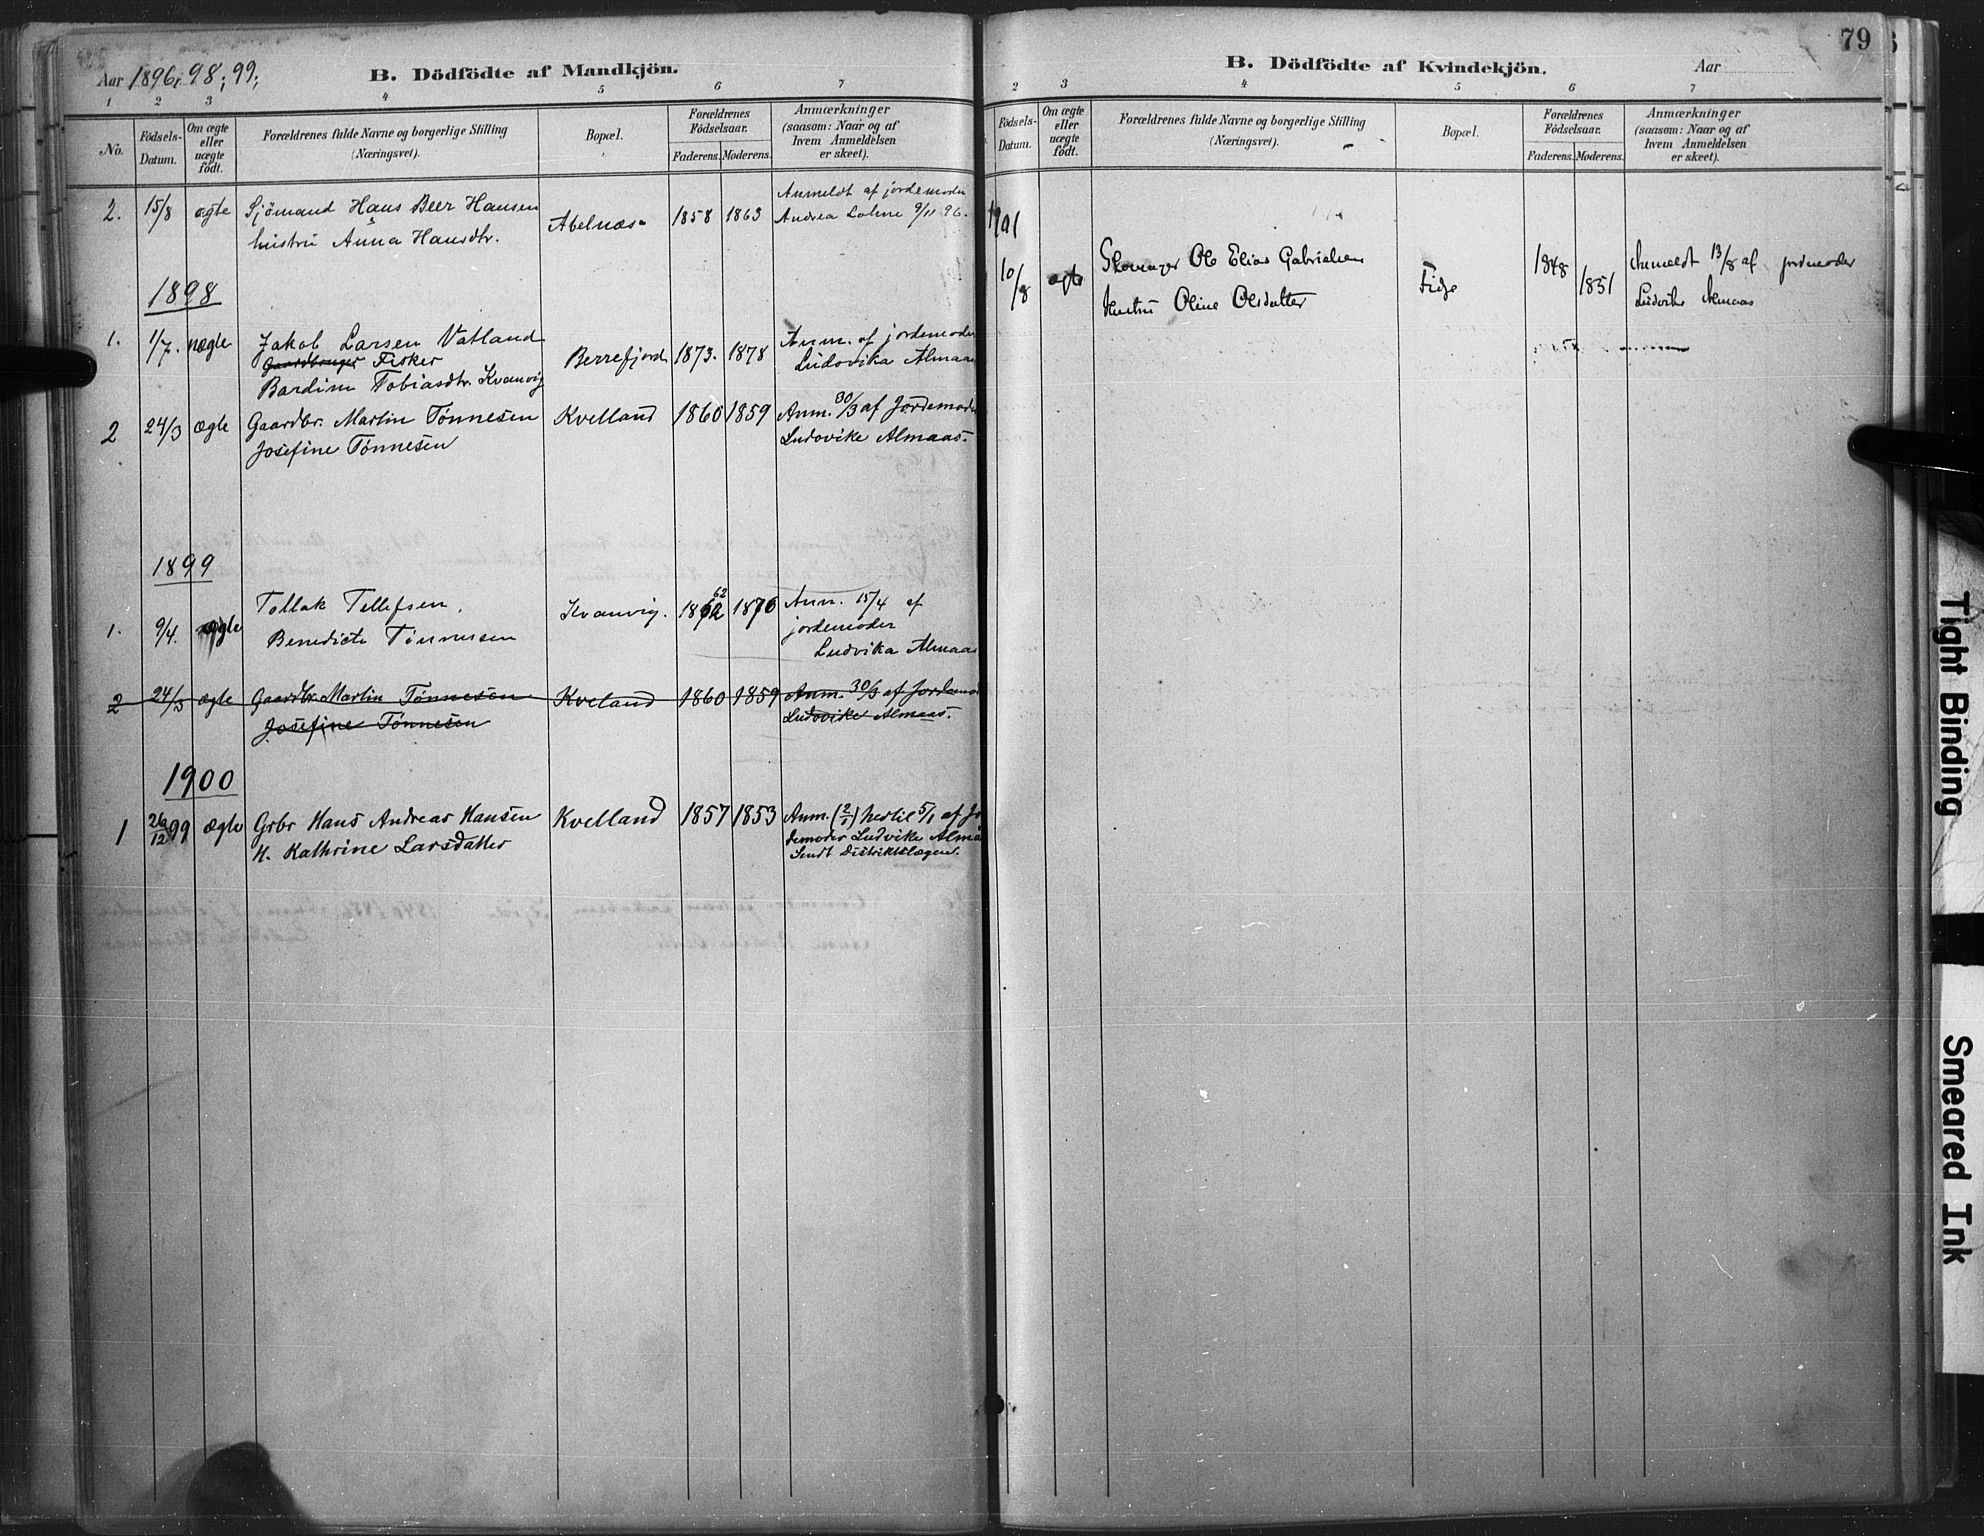 Aar 1896, 98; 99;
B. Dödfödte af Mandkjön.
1 2 3 4 5 6 7
No.
Födsels-
Datum.
Om ægte
eller
uægte
födt.
Forældrenes fulde Navne og borgerlige Stilling
(Næringsvei).
Bopæl.
Forældrenes
Födselsaar.
Faderens. Moderens.
Anmærkninger
(saasom: Naar og af
hvem Anmeldelsen
er skeet).
2. 15/8 ægte Sjömand Hans Beer Hansen Abelnæs 1858 1863 Anmeldt af jordemoder
hustru Anna Hansdtr. Andrea Lohne 9/11 96.
1898
1. 1/7. uægte Jakob Larsen Vatland Berrefjord 1873. 1878 Anm. af jordemoder
Gaardbruger Fisker Ludovika Almaas
Bardine Tobiasdtr. Kvanvig
2 24/3 ægte Gaardbr. Martin Tönnesen Kvelland 1860 1859 Anm. 30/3 af Jordemoder
Josefine Tönnesen Ludovike Almaas.
1899
1. 9/4. ægte Tollak Tellefsen, Kvanvig. 1862 62 1876 Anm. 15/4 af
Benedicte Tönnessen jordemoder
Ludvika Almaas
2 24/3 ægte Gaardbr. Martin Tönnesen Kveland 1860 1859 Anm. 30/3 af Jordemo
Josefine Tönnesen Ludovike Almaas.
1900
1 26/12 99 ægte Grbr Hans Andreas Hansen Kvelland 1857 1853 Anm. (2/1) hertil 5/1 af Jor
H. Kathrine Larsdatter demoder Ludvike Almaa
Sendt Distriktslægen.
79
B. Dödfödte af Kvindekjön.
Aar
2 3 4 5 6 7
Födsels-
Datum.
Om ægte
eller
uægte
födt.
Forældrenes fulde Navne og borgerlige Stilling
(Næringsvei).
Bopæl.
Forældrenes
Födselsaar.
Faderens. Moderens.
Anmærkninger
(saasom: Naar og af
hvem Anmeldelsen
er skeet).
1901
10/8 ægte Ole Elias Gabrielsen Fidje 1848 1851 Anmeldt 13/8 af jordmoder
Hustru Oline Olsdatter Ludvike Almaas
Tight Binding
Smeared Ink